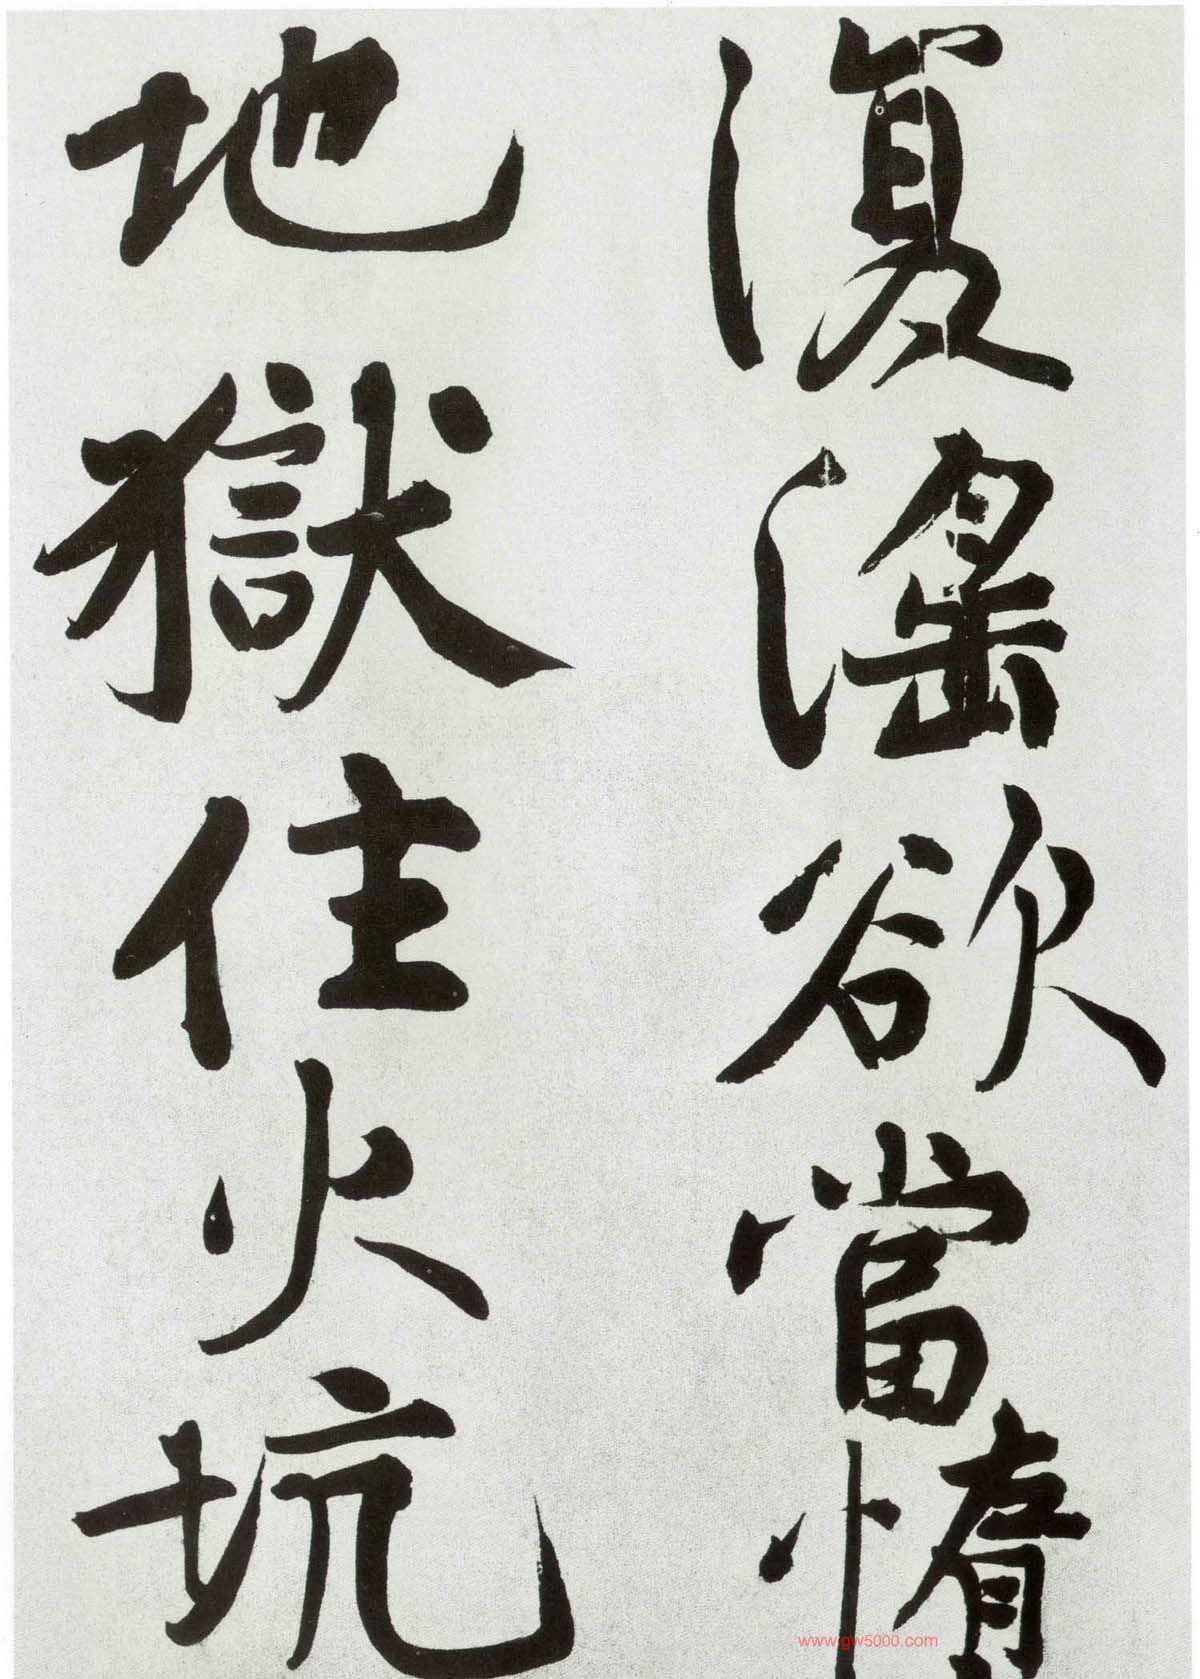 復滛欲當惰
地獄住火坑
www.gw5000.com